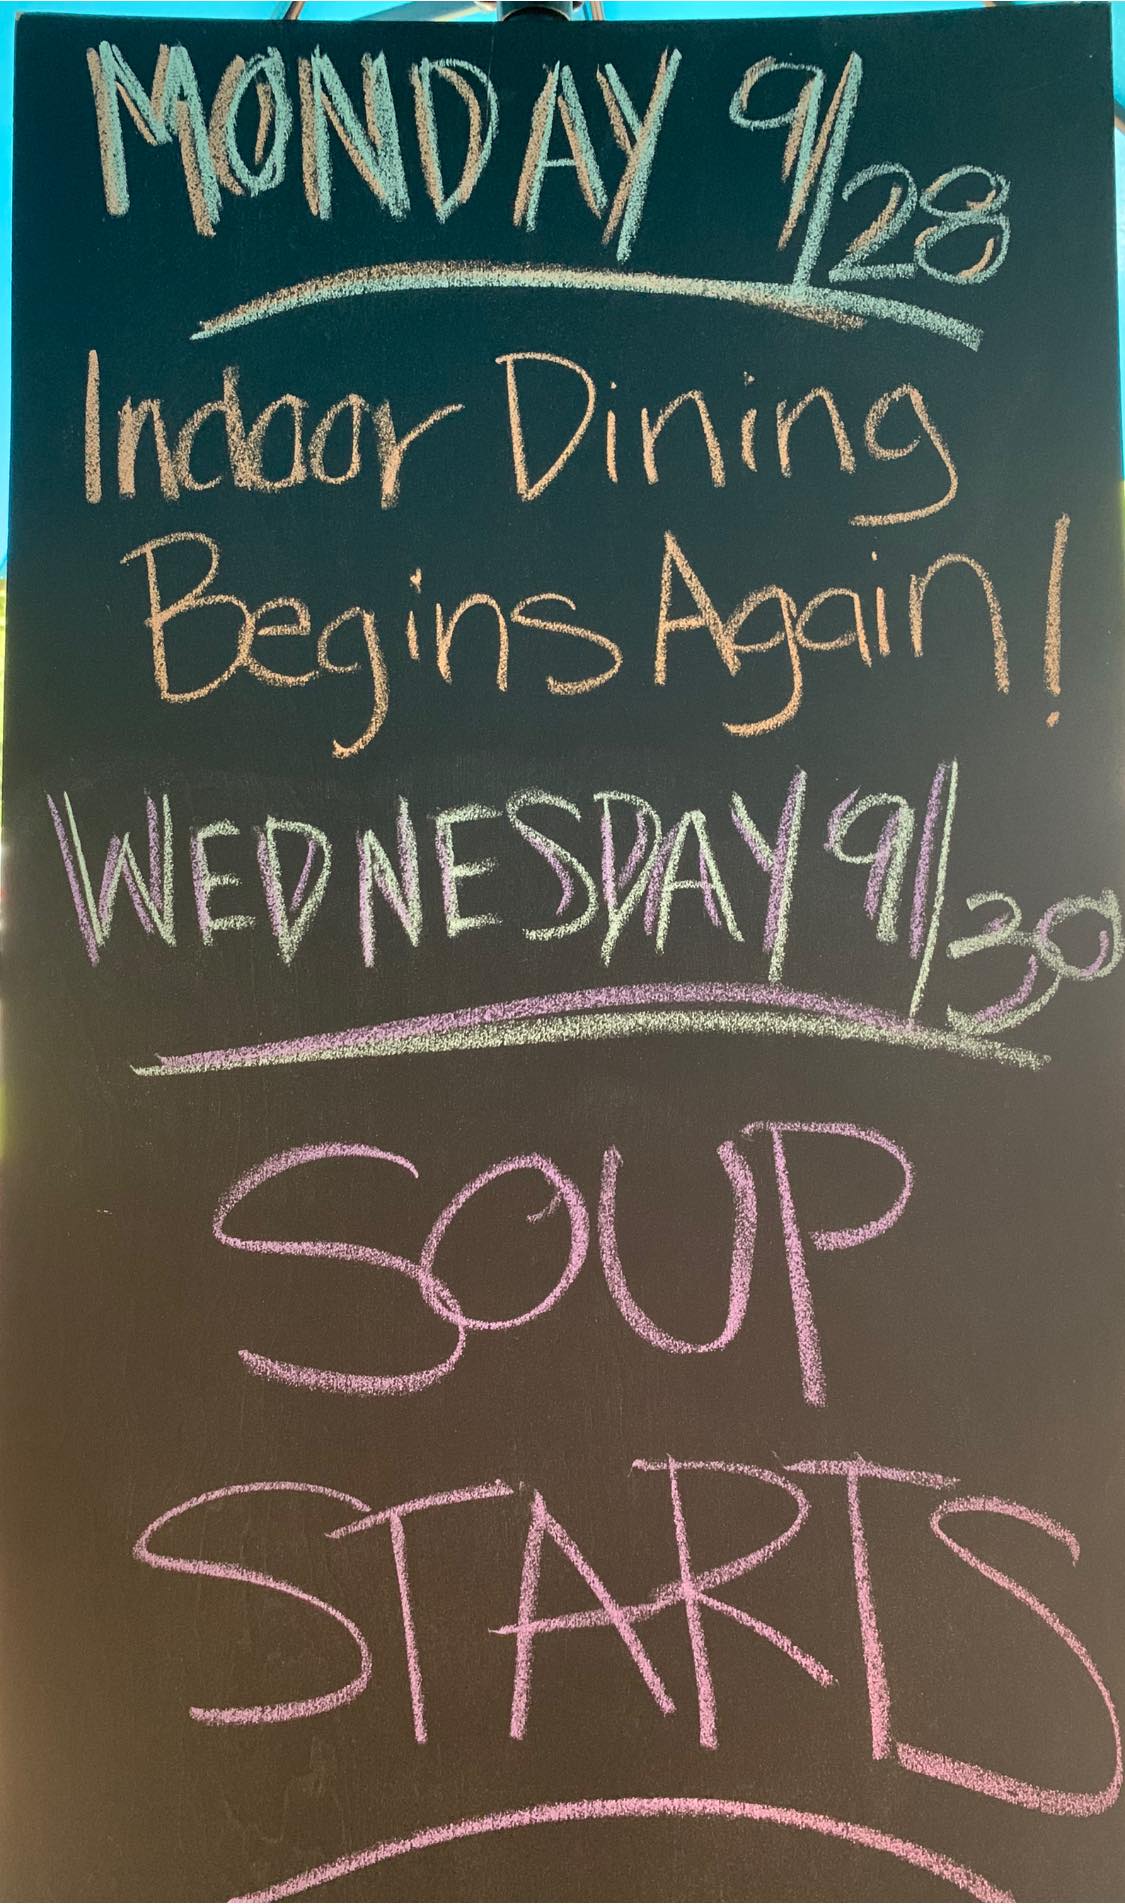 MONDAY 9/28
Indoor Dining
Begins Again!
WEDNESDAY 9/30
SOUP
STARTS